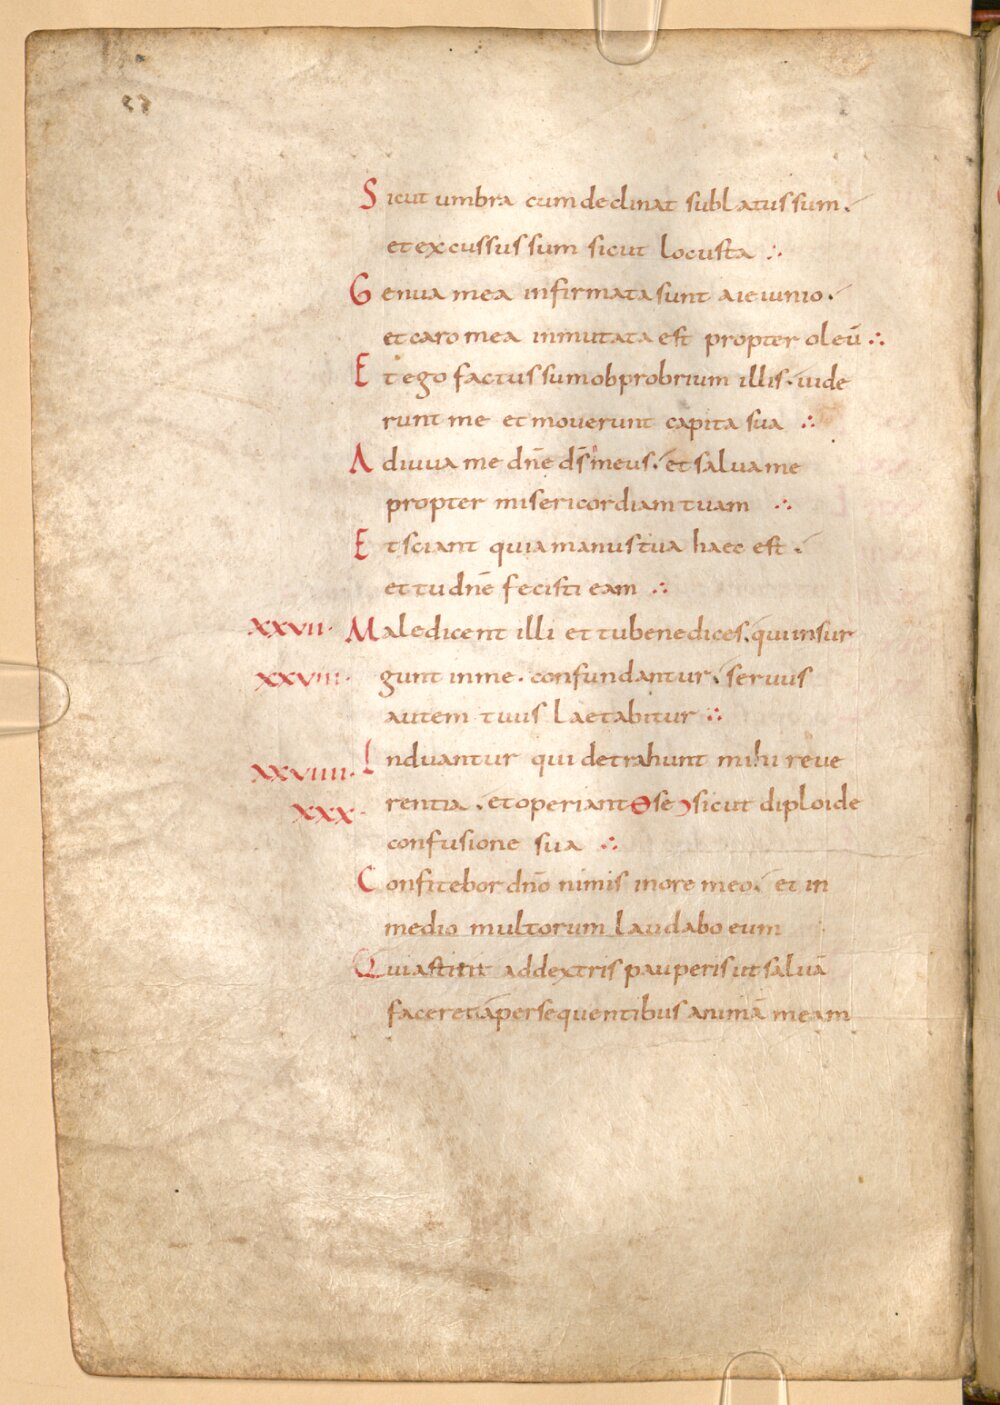 Sicut umbra cum declinat sublatus sum.
et excussus sum sicut locusta ∴
Genua mea infirmata sunt a ieiunio.
et caro mea inmutata est propter oleū ∴
Et ego factus sum obprobrium illis. uide
runt me et mouerunt capita sua ∴
Adiuua me dn̄e ds̄ meus. et salua me
propter misericordiam tuam ∴
Et sciant quia manus tua haec est.
et tu dn̄e fecisti eam ∴
XXVII. Maledicent illi et tu benedices. qui insur
XXVIII. gunt in me. confundantur. seruus
autem tuus laetabitur ∴
XXVIIII. Induantur qui detrahunt mihi reue
XXX. rentia. et operiant se sicut diploide
confusione sua ∴
Confitebor dn̄o nimis in ore meo. et in
medio multorum laudabo eum
Quia stitit ad dextris pauperis ut saluā
faceret a persequentibus animā meam